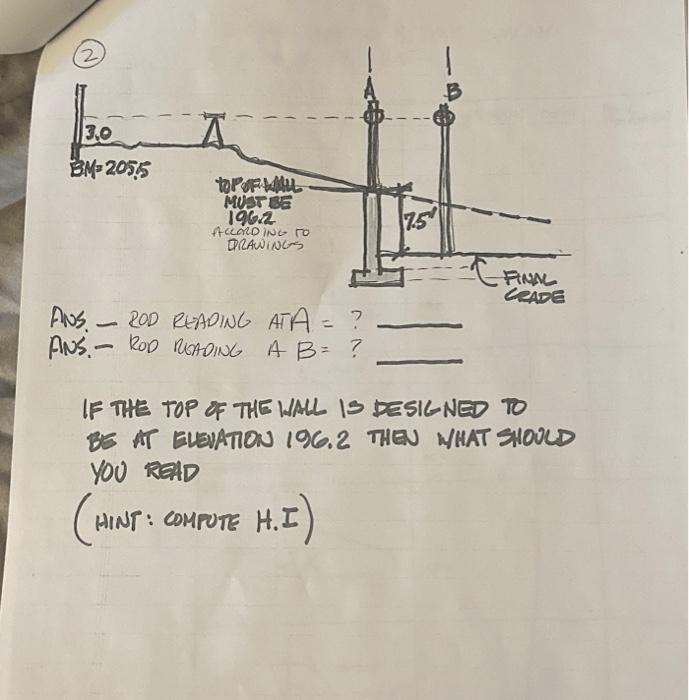 2
A
B
3.0
BM=205.5
TOP OF WALL
MUST BE
196.2
ACCORDING TO
DRAWINGS
7.5'
FINAL
GRADE
ANS. — ROD READING AT A = ?
ANS. — ROD READING A B = ?
IF THE TOP OF THE WALL IS DESIGNED TO
BE AT ELEVATION 196.2 THEN WHAT SHOULD
YOU READ
(HINT: COMPUTE H.I)